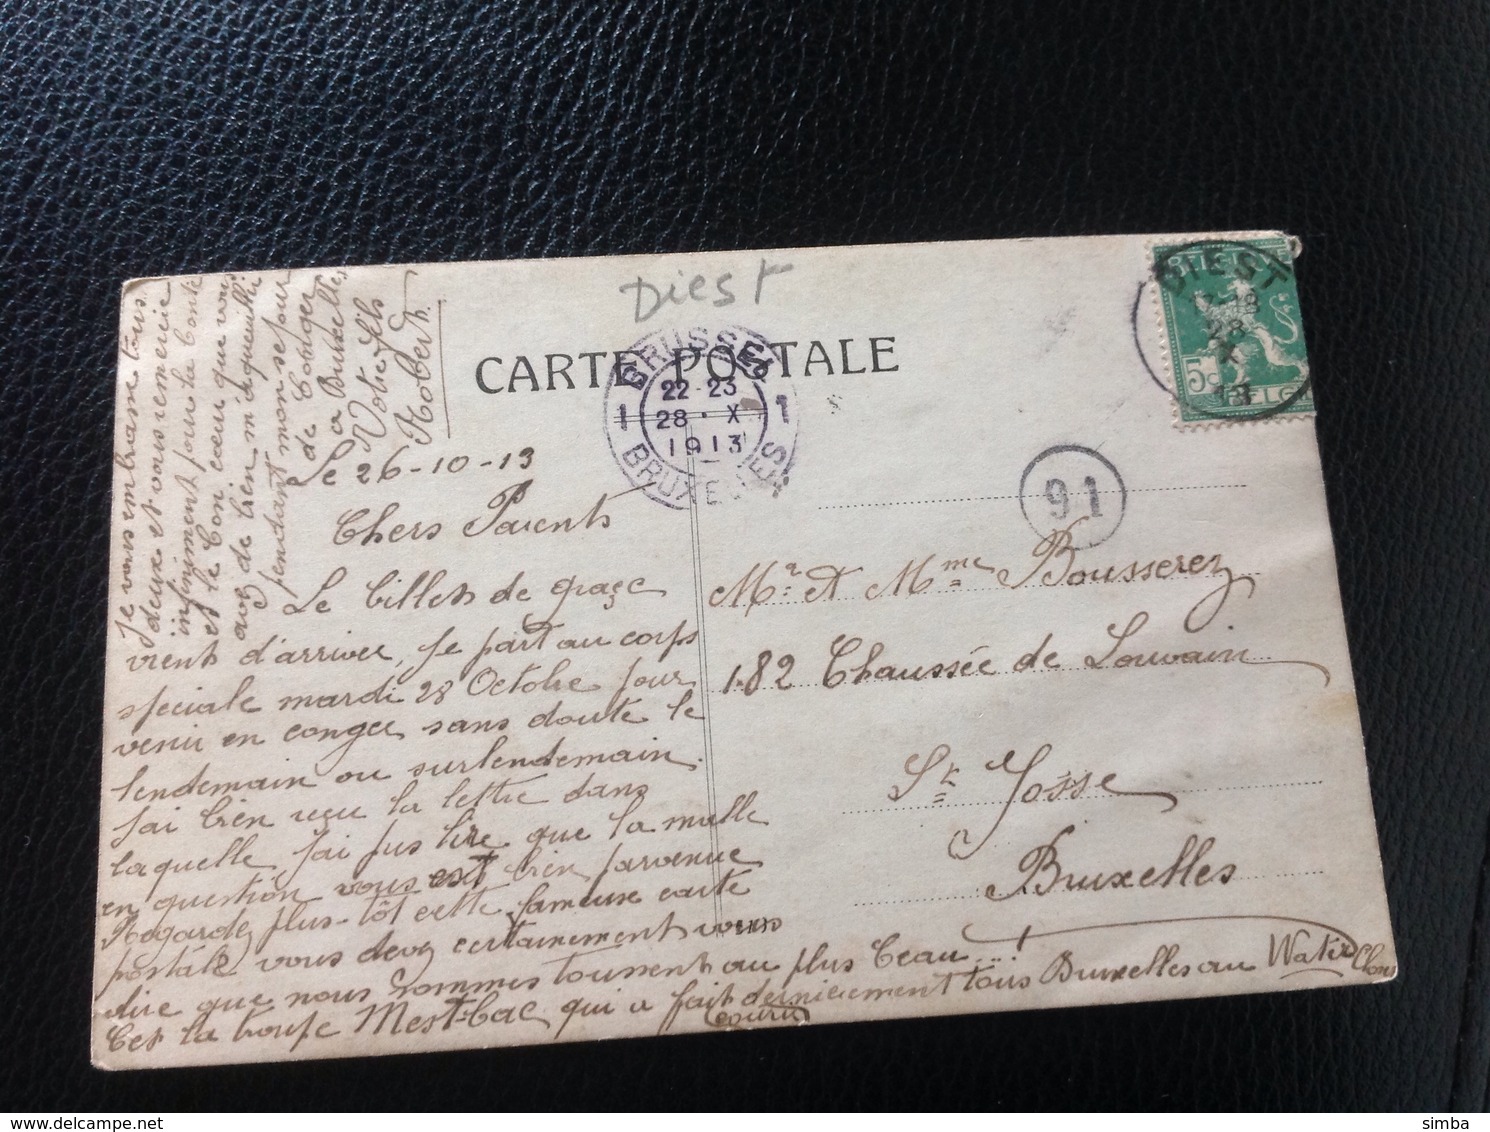 Diest
CARTE POSTALE
BRUSSEL
22-23
28 · X
1913
1 1
BRUXELLES
DIEST
28
X
13
BELGIE
5c
BELGI
91
Le 26-10-13
Chers Parents
Le billets de graçe
vients d'arriver, Je part au corps
speciale mardi 28 Octobre pour
venir en conger sans doute le
lendemain ou surlendemain.
J'ai bien reçu la lettre dans
laquelle j'ai pus lire que la malle
en question vous est bien parvenue
Regardez plus-tôt cette fameuse carte
postale vous devez certainement vous
dire que nous sommes toussent au plus beau...!
C'et la troupe Mestbac qui a fait dernierement tous Bruxelles au Water Clous
courir
Je vous embrasse tous
deux et vous remercie
infiniment pour la bonté
et le bon cœur que vous
avez de bien m'aqueillir
pendant mon sejour
de Conger
a Bruxelles
Votre fils
Robert.
Mr. et Mme Bousserez
182 Chaussée de Louvain
St. Josse
a
Bruxelles
simba
delcampe.net